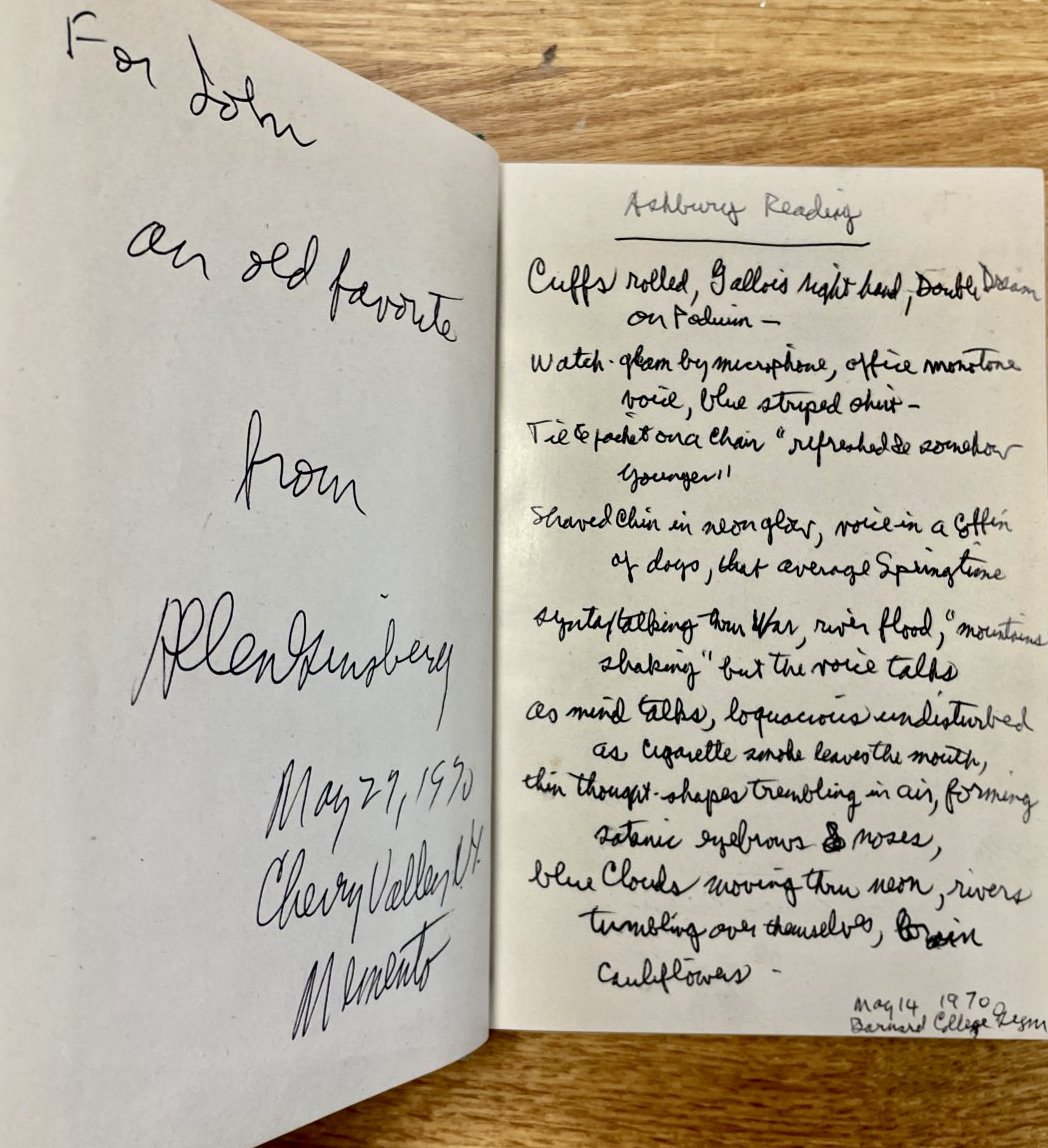 For John
an old favorite
from
Allen Ginsberg
May 29, 1970
Cherry Valley N.Y.
Memento
Ashbury Reading
Cuffs rolled, Gallois right hand, Double Dream
on Podium —
Watch-gleam by microphone, office monotone
voice, blue striped shirt —
Tie & jacket on a chair "refreshed & somehow
younger"
Shaved Chin in neon glow, voice in a Coffin
of days, that average Springtime
syntax talking thru War, river flood, "mountains
shaking" but the voice talks
as mind talks, loquacious undisturbed
as cigarette smoke leaves the mouth,
thin thought-shapes trembling in air, forming
satanic eyebrows & noses,
blue Clouds moving thru neon, rivers
tumbling over themselves, brain
Cauliflowers -
May 14 1970
Barnard College